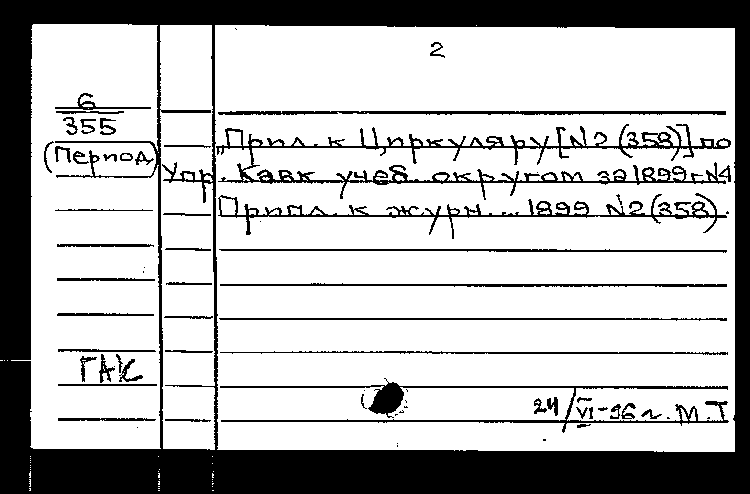 2
6
355
(Период)
„Прил. к Циркуляру [N2 (358)] по
Упр. Кавк учеб. округом за 1899 г. N4
Прил. к журн. ... 1899 N2 (358).
ГАК
24/VI-96 г. М.Т.